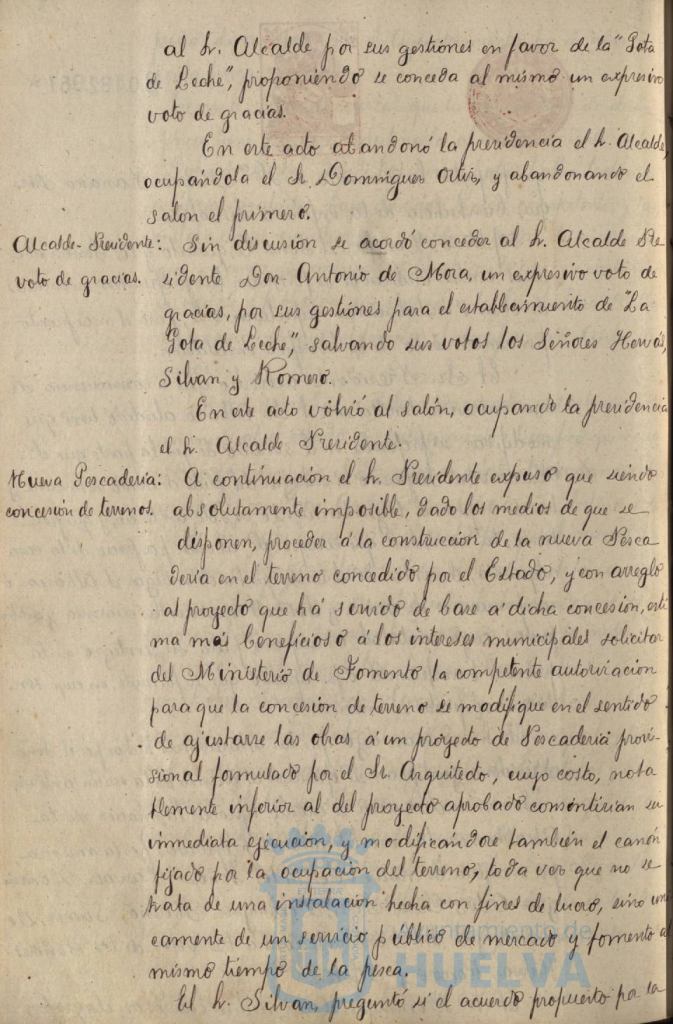 al Sr. Alcalde por sus gestiones en favor de la "Gota
de Leche", proponiendo se conceda al mismo un expresivo
voto de gracias.
En este acto abandonó la presidencia el Sr. Alcalde,
ocupándola el Sr. Dominguez Ortiz, y abandonando el
salon el primero.
Alcalde-Presidente: Sin discusion se acordó conceder al Sr. Alcalde Pre
voto de gracias. sidente Don Antonio de Mora, un expresivo voto de
gracias, por sus gestiones para el establecimiento de "La
Gota de Leche", salvando sus votos los Señores Hervás,
Silvan y Romero.
En este acto volvió al salón, ocupando la presidencia
el Sr. Alcalde Presidente.
Nueva Pescaderia: A continuación el Sr. Presidente expuso que siendo
concesión de terrenos. absolutamente imposible, dado los medios de que se
disponen, proceder á la construcción de la nueva Pesca
deria en el terreno concedido por el Estado, y con arreglo
al proyecto que há servido de base a dicha concesion, esti
ma más beneficioso á los intereses municipales solicitar
del Ministerio de Fomento la competente autorización
para que la concesion de terreno se modifique en el sentido
de ajustarse las obras á un proyecto de Pescaderia provi-
sional formulado por el Sr. Arquitecto, cuyo costo, nota
blemente inferior al del proyecto aprobado consentirian su
inmediata ejecución, y modificándose también el canón
fijado por la ocupación del terreno, toda vez que no se
trata de una instalación hecha con fines de lucro, sino uni
camente de un servicio público de mercado y fomento al
mismo tiempo de la pesca.
El Sr. Silvan, preguntó si el acuerdo propuesto por la
Ayuntamiento de
HUELVA